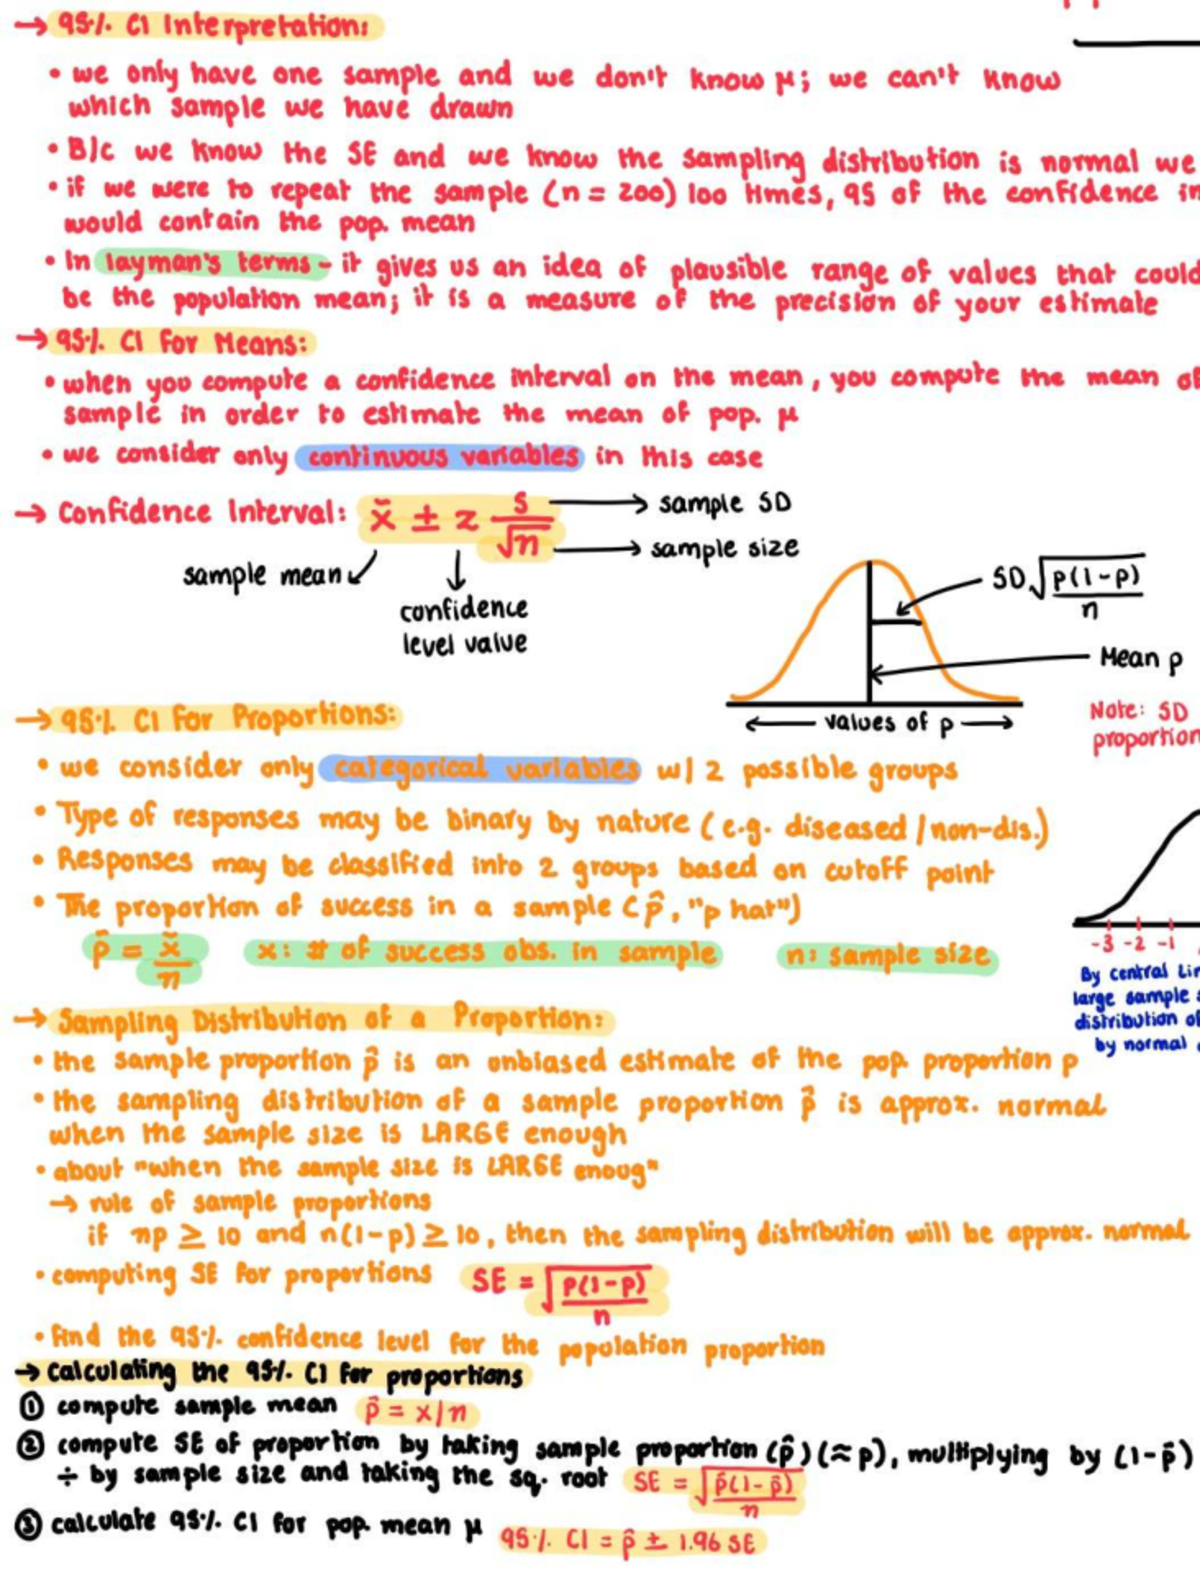 → 95% CI Interpretation:
• we only have one sample and we don't know μ; we can't know
which sample we have drawn
• B/c we know the SE and we know the sampling distribution is normal we
• if we were to repeat the sample (n = 200) 100 times, 95 of the confidence in
would contain the pop. mean
• In layman's terms - it gives us an idea of plausible range of values that could
be the population mean; it is a measure of the precision of your estimate
→ 95% CI for Means:
• when you compute a confidence interval on the mean, you compute the mean of
sample in order to estimate the mean of pop. μ
• we consider only continuous variables in this case
→ Confidence Interval: x̃ ± z s/√n
sample SD
sample size
sample mean
confidence
level value
SD √p(1-p)/n
Mean p
← values of p →
Note: SD
proportion
→ 95% CI for Proportions:
• we consider only categorical variables w/ 2 possible groups
• Type of responses may be binary by nature (e.g. diseased / non-dis.)
• Responses may be classified into 2 groups based on cutoff point
• The proportion of success in a sample (p̂, "p hat")
p̂ = x̃/n x: # of success obs. in sample n: sample size
-3 -2 -1
By central Lim
large sample
distribution of
by normal
→ Sampling Distribution of a Proportion:
• the sample proportion p̂ is an unbiased estimate of the pop. proportion p
• the sampling distribution of a sample proportion p̂ is approx. normal
when the sample size is LARGE enough
• about "when the sample size is LARGE enoug"
→ rule of sample proportions
if np ≥ 10 and n(1-p) ≥ 10, then the sampling distribution will be approx. normal
• computing SE for proportions SE = √p(1-p)/n
• find the 95% confidence level for the population proportion
→ calculating the 95% CI for proportions
① compute sample mean p̂ = x/n
② compute SE of proportion by taking sample proportion (p̂) (≈ p), multiplying by (1-p̂)
÷ by sample size and taking the sq. root SE = √p̂(1-p̂)/n
③ calculate 95% CI for pop. mean μ 95% CI = p̂ ± 1.96 SE